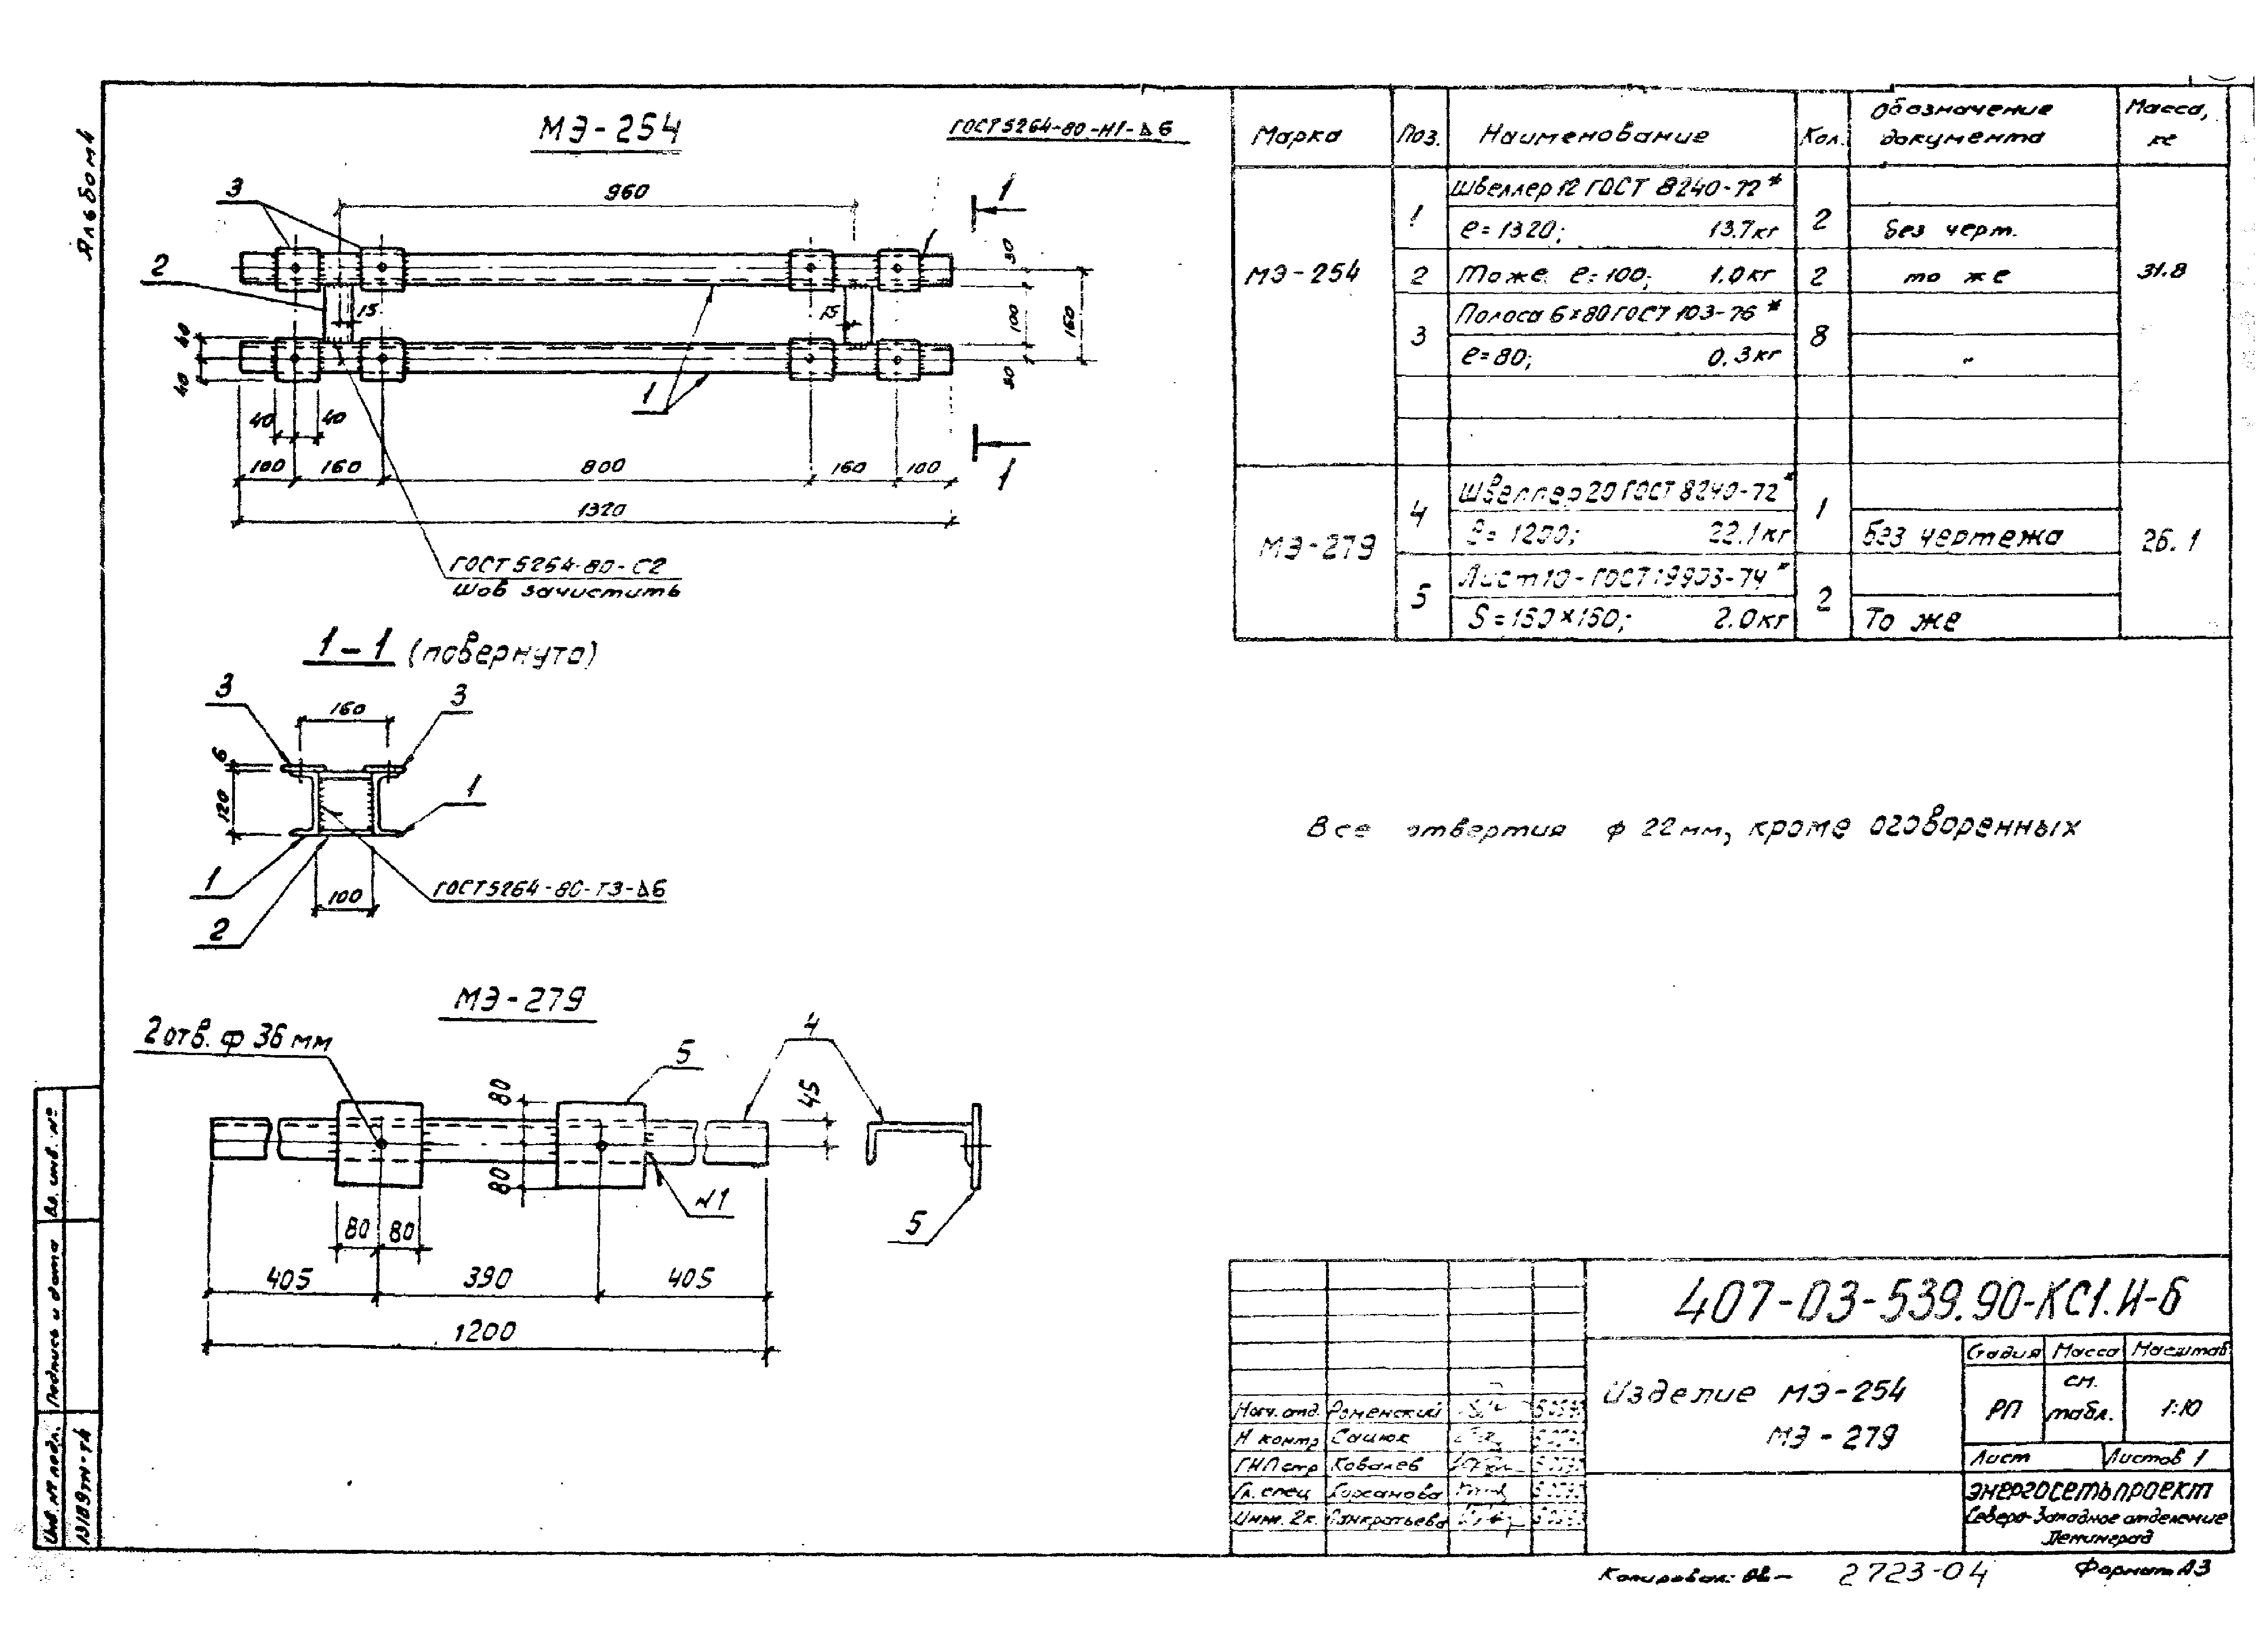 Альбом 4
МЭ-254
ГОСТ 5264-80-Н1-Δ6
3
960
1
2
15
15
30
100
160
30
40
40
1
40
40
100
160
800
160
100
1
1320
ГОСТ 5264-80-С2
Шов зачистить
1-1 (повернуто)
3
3
160
6
120
1
1
100
2
ГОСТ 5264-80-Т3-Δ6
МЭ-279
2 отв. ф 36 мм
5
4
80
45
80
N1
5
80
80
405
390
405
1200
Марка
Поз.
Наименование
Кол.
Обозначение
документа
Масса,
кг
МЭ-254
1
Швеллер 12 ГОСТ 8240-72*
ℓ=1320; 13.7кг
2
Без черт.
31.8
2
То же ℓ=100; 1.0кг
2
то же
3
Полоса 6×80 ГОСТ 103-76*
ℓ=80; 0.3кг
8
"
МЭ-279
4
Швеллер 20 ГОСТ 8240-72*
ℓ=1200; 22.1кг
1
Без чертежа
26.1
5
Лист 10-ГОСТ 19903-74*
S=160×160; 2.0кг
2
То же
Все отвертия ф 22мм, кроме оговоренных
407-03-539.90-КС1.И-6
Изделие МЭ-254
МЭ-279
Стадия
Масса
Масштаб
РП
см.
табл.
1:10
Лист
Листов 1
Энергосетьпроект
Северо-Западное отделение
Ленинград
Нач. отд. Роменский
Н контр Сацюк
ГИП стр Ковалев
Гл. спец
Инж. 2к. Панкратьева
Взв. инв. №
Подпись и дата
Инв. № подл.
13189тм-т4
Копировал:
2723-04
Формат А3